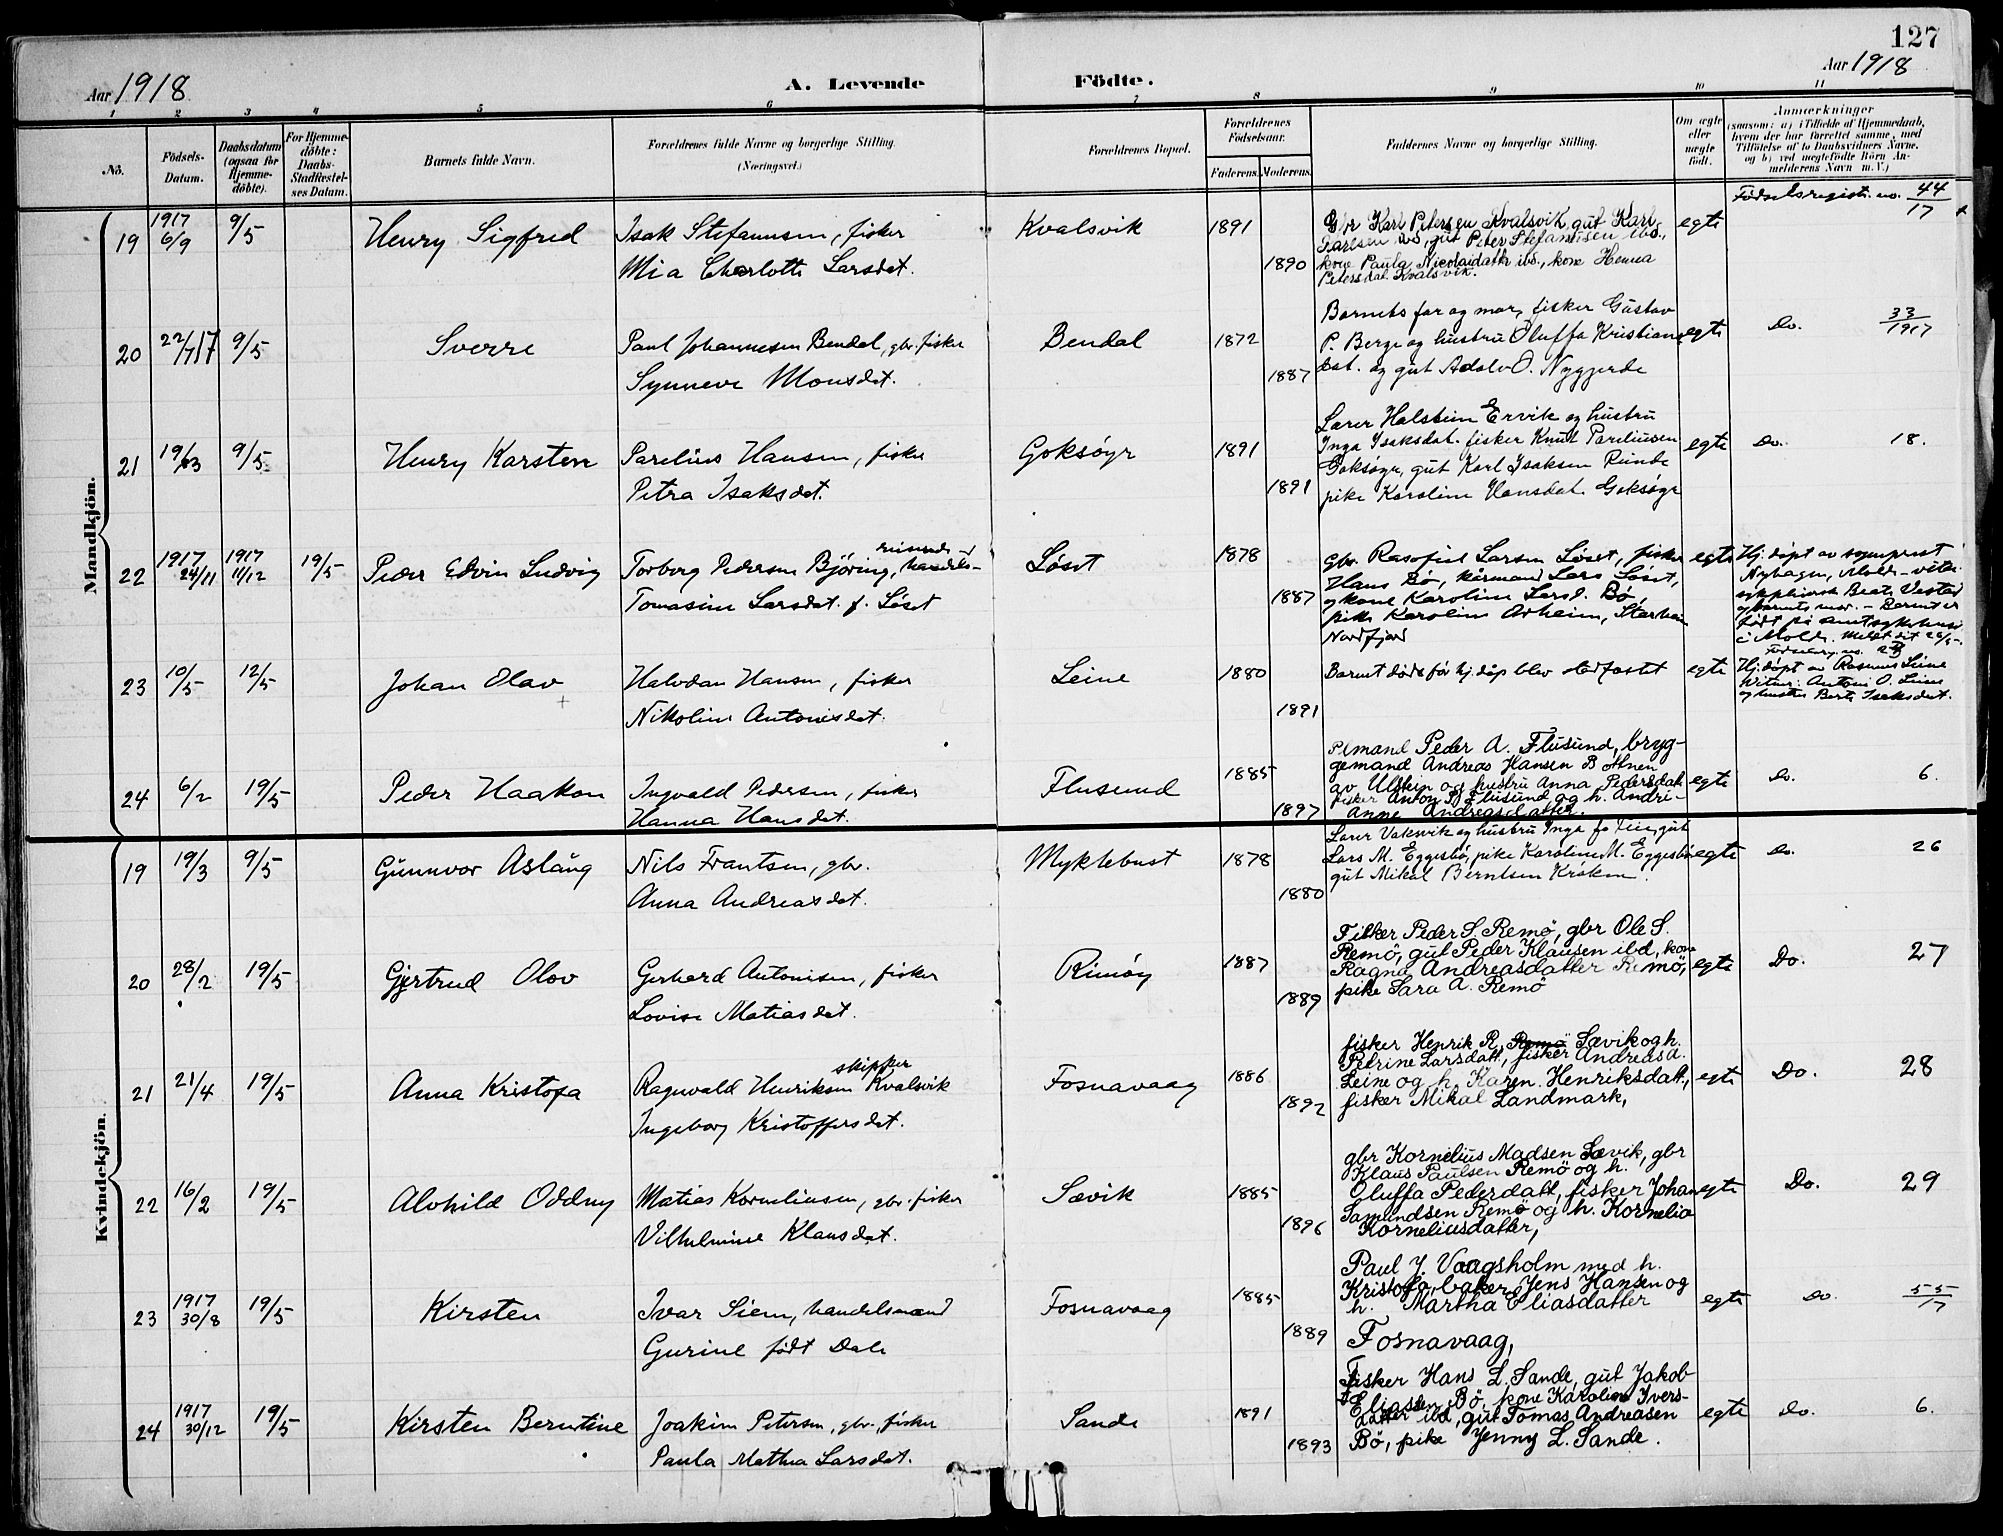 127
Aar 1918
A. Levende Födte.
Aar 1918
1 2 3 4 5 6 7 8 9 10 11
No.
Födsels-Datum.
Daabsdatum (ogsaa for Hjemme-döbte).
For Hjemme-döbte: Daabs-Stadfæstel-ses Datum.
Barnets fulde Navn.
Forældrenes fulde Navne og borgerlige Stilling. (Næringsvei.)
Forældrenes Bopæl.
Forældrenes Födselsaar.
Faderens. Moderens.
Faddernes Navne og borgerlige Stilling.
Om ægte eller uægte födt.
Anmærkninger
(saasom: a) i Tilfælde af Hjemmedaab,
hvem der har forrettet samme, med
Tilföielse af to Daabsvidners Navne,
og b) ved uægtefödte Börn An-
melderens Navn m. V.)
Mandkjön.
Födselsregist. no. 44/17
19 1917 6/9 9/5 Henry Sigfred Isak Stefansen, fisker Kvalsvik 1891 Gbr Karl Petersen Kvalsvik, gut Karl egte
Karlsen ibd, gut Peter Stefansen ibd.,
Mia Charlotte Larsdat. 1890 kone Paula Nicolaidattr ibd., kone Henna
Petersdat. Kvalsvik.
Barnets far og mor, fisker Gustav
20 22/7 17 9/5 Sverre Paul Johannesen Bendal, gbr. fisker Bendal 1872 P. Berge og hustru Oluffa Kristians egte Do. 33/1917
Synneve Monsdat. 1887 dat. og gut Adolv O. Nygjerde
Lærer Halstein Ervik og hustru
21 19/3 9/5 Henry Karsten Parelius Hansen, fisker Goksöyr 1891 Inga Isaksdat. fisker Knut Pareliusen egte Do. 18.
Goksøyr, gut Karl Isaksen Runde
Petra Isaksdat. 1891 pike Karoline Hansdat. Goksøyr
22 1917 24/11 1917 11/12 19/5 Peder Edvin Ludvig Torberg Pedersen Björing, handels- Løset 1878 Gbr. Rasofiel Larsen Løset, fisker egte Hj. døpt av sogneprest
Hans Bø, Lars Løset, Nyhagen, Molde
Tomasine Larsdat. f. Löset 1887 og kone Karoline Larsd. Bø, Beate Vestad
pike Karoline Arheim, og barnets mor. – Barnet er
Nordfjord født på amtssykehuset
i Molde.
23 10/5 12/5 Johan Olav Halvdan Hansen, fisker Leine 1880 Barnet døde før hj. dåp blev stadfæstet egte Hj. døpt av Rasmus Leine
Vitner: Antoni O. Leine
Nikoline Antonisdat. 1891 og hustru Berte Isaksdat.
Peder A. Flusund, bryg-
gemand Andreas Hansen Botnen
24 6/2 19/5 Peder Haakon Ingvald Pedersen, fisker Flusund 1885 av Ulstein og hustru Anna Pedersdat egte Do. 6.
fisker Anton P. Flusund og h. Andri-
Hanna Hansdat. 1897 Anne Andreasdatter.
Kvindekjön.
Lærer Vaksvik og hustru Inga, gut
19 19/3 9/5 Gunnvor Aslaug Nils Frantsen, gbr. Myklebust 1878 Lars M. Eggesbö, pike Karoline M. Eggesbö egte Do. 26
gut Mikal Berntsen Kröken.
Anna Andreasdat. 1880
Fisker Peder S. Remö, gbr Ole S.
20 28/2 19/5 Gjertrud Olov Gerhard Antonisen, fisker Rimöy 1887 Remö, gut Peder Klausen ibd, kone
Ragna Andreasdatter Remö, egte Do. 27
Lovise Matiasdat. 1889 pike Sara A. Remö
fisker Henrik R. Remö Sævik og h.
skipper Petrine Larsdatt, fisker Andreas A.
21 21/4 19/5 Anna Kristofa Ragnvald Henriksen Kvalsvik Fosnavaag 1886 Leine og h. Karen Henriksdatt., egte Do. 28
Ingeborg Kristoffersdat. 1892 fisker Mikal Landmark,
gbr Kornelius Madsen Sævik, gbr
Klaus Paulsen Remö og h.
22 16/2 19/5 Alvhild Oddny Matias Korneliusen, gbr. fisker Sævik 1885 Oluffa Pederdatt, fisker Johan egte Do. 29
Samundsen Remö og h. Kornelia
Vilhelmine Klausdat. 1896 Korneliusdatter,
Paul J. Vaagsholm med h.
23 1917 30/8 19/5 Kirsten Ivar Siem, handelsmand Fosnavaag 1885 Kristofa, baker Jens Hansen og
h. Martha Eliasdatter egte Do. 55/17
Gurine født Dale 1889 Fosnavaag,
Fisker Hans L. Sande, gut Jakob
Eliassen Bö, kone Karoline Ivers-
24 1917 30/12 19/5 Kirsten Berntine Joakim Petersen, gbr., fisker Sande 1891 datter ibd, gut Tomas Andreasen egte Do. 6.
Paula Mathea Larsdat. 1893 Bö, pike Jenny L. Sande.